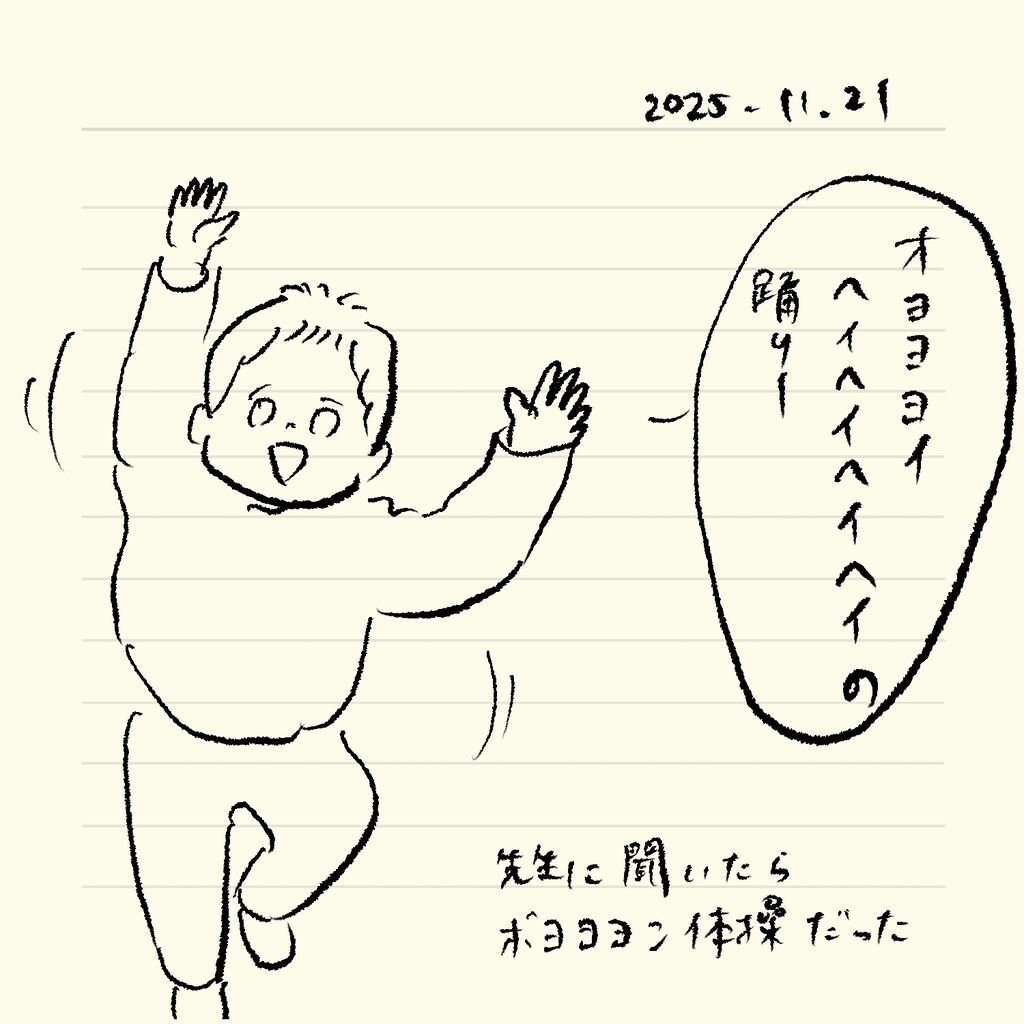 2025-11.21
オヨヨヨイ
ヘイヘイヘイヘイの
踊りー
先生に聞いたら
ボヨヨヨン体操だった